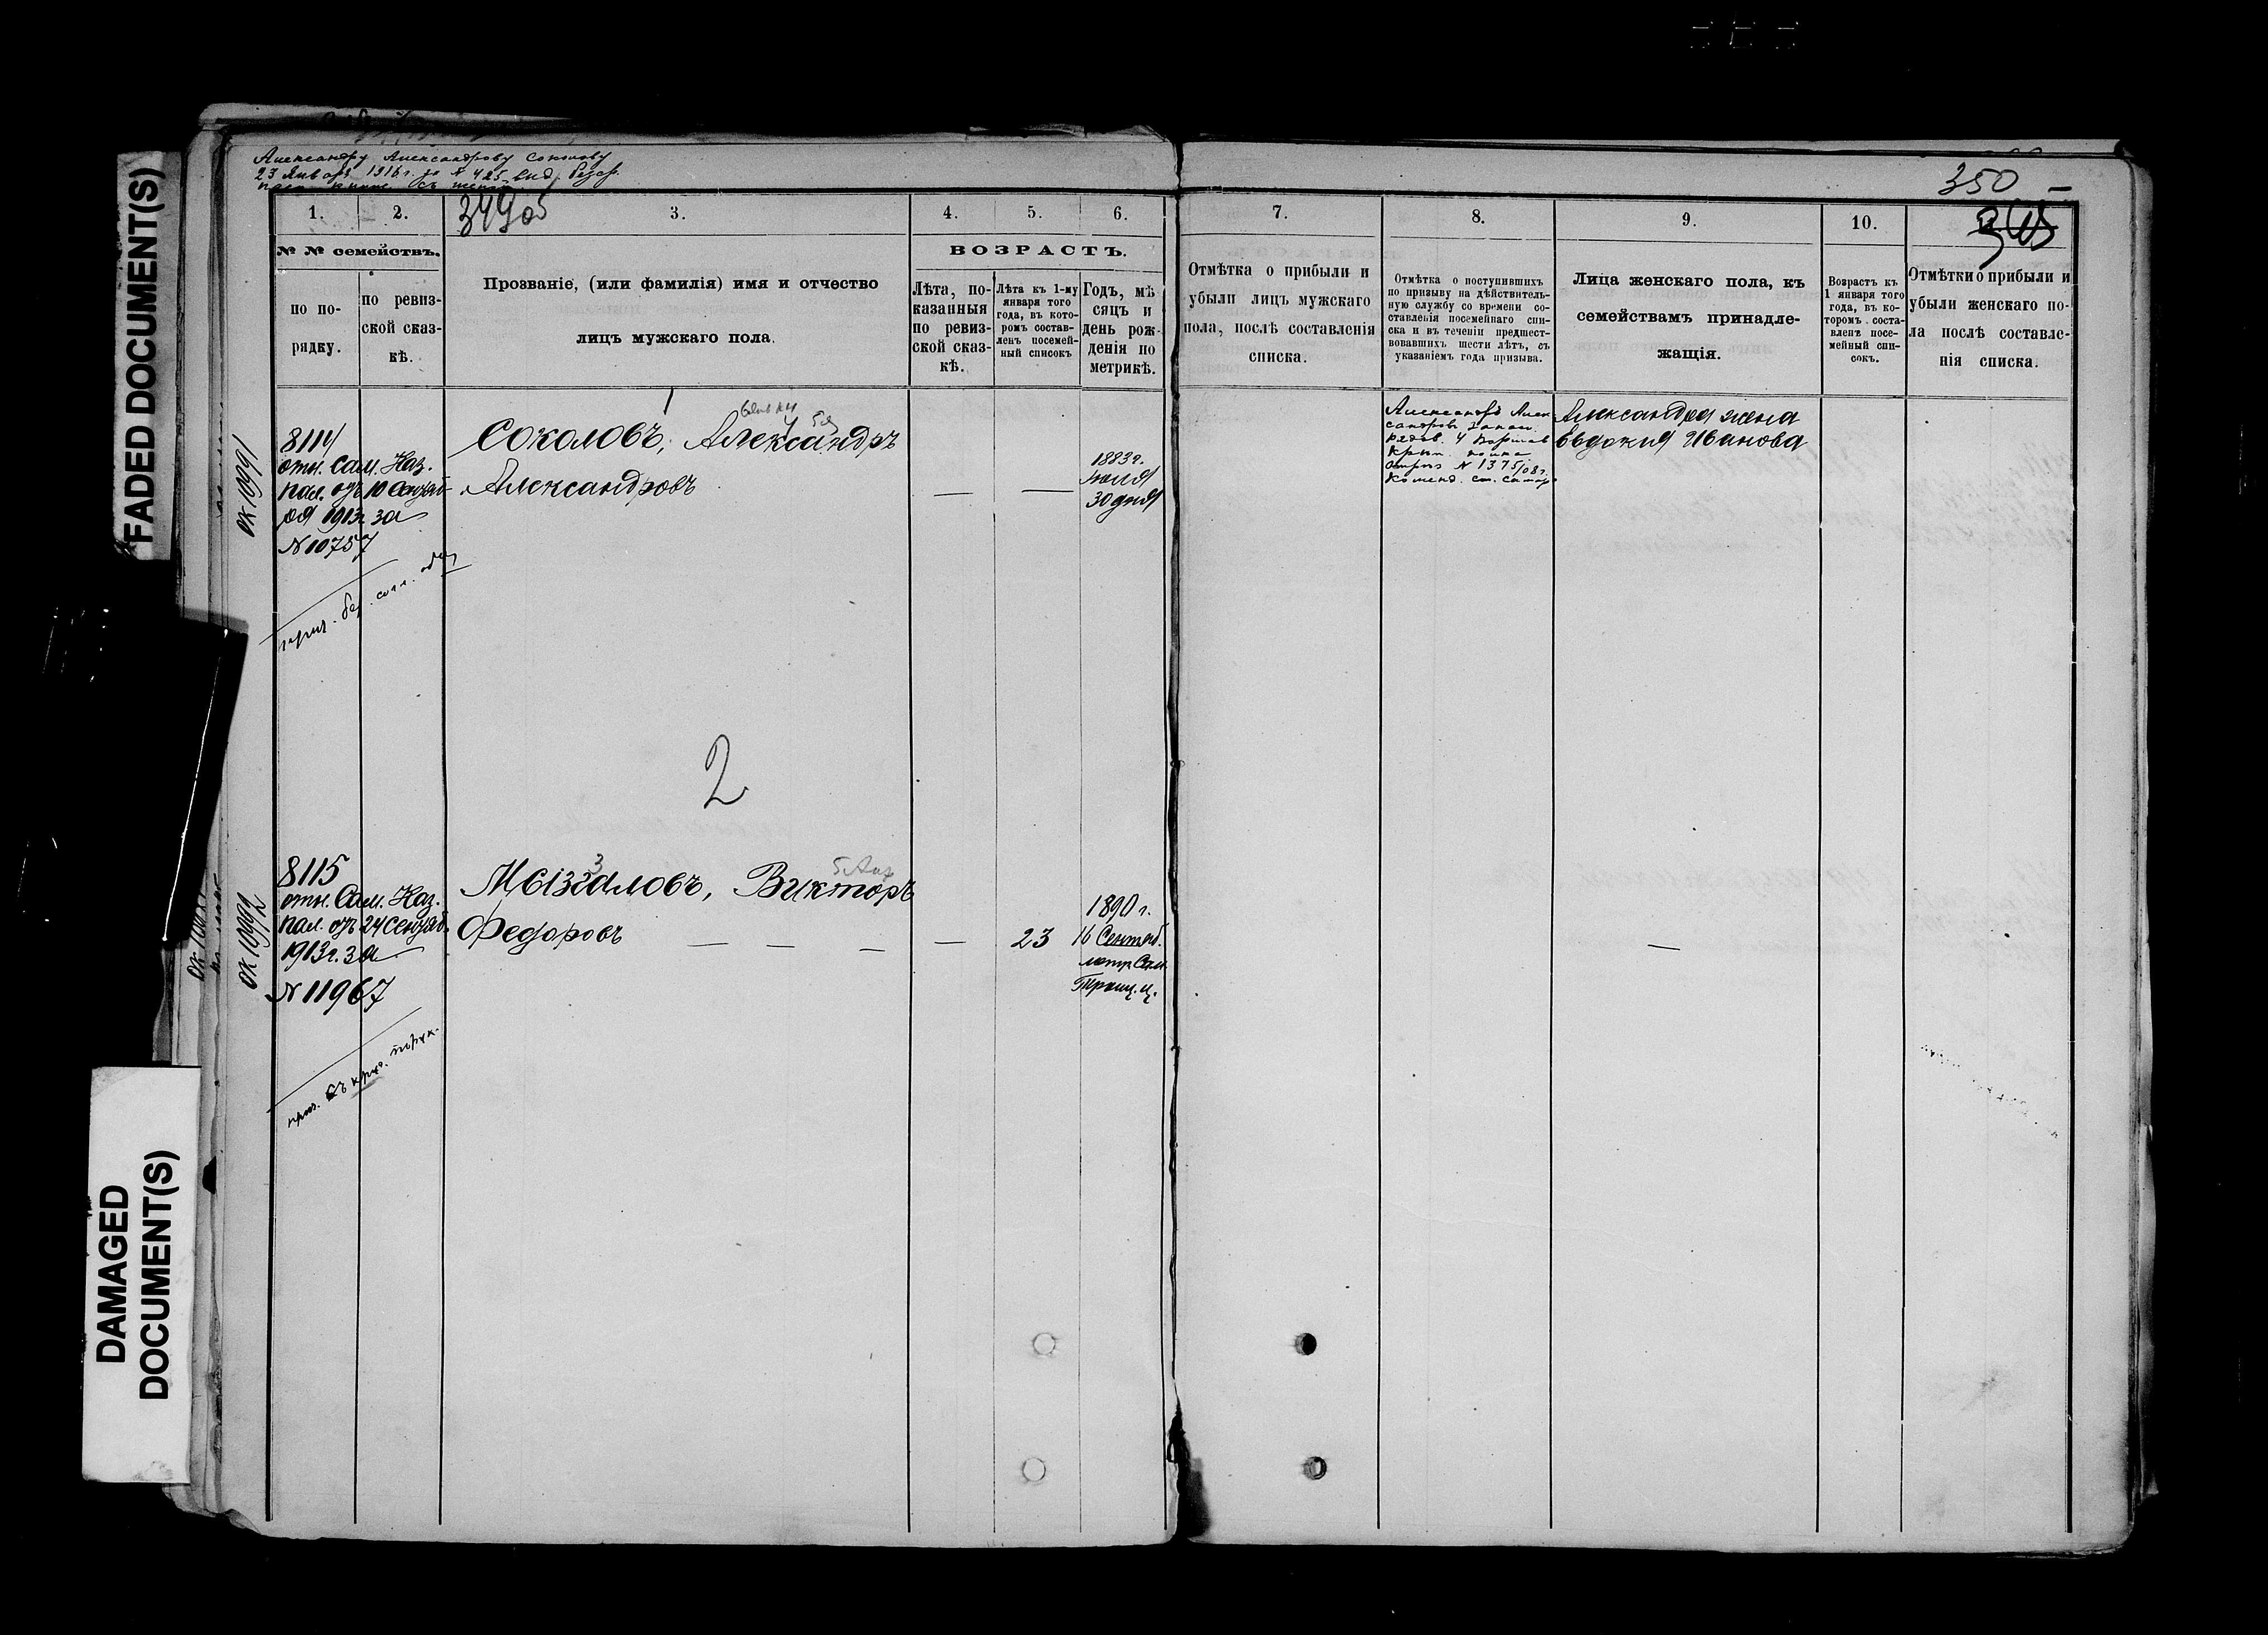 FADED DOCUMENT(S)
DAMAGED
DOCUMENT(S)
Александру Александрову Соколову
23 Января 1916 г. за № 425 выд. безср.
350
1.
2.
3.
4.
5.
6.
7.
8.
9.
10.
№ № семействъ.
по по-
рядку.
по ревиз-
ской сказ-
кѣ.
Прозваніе, (или фамилія) имя и отчество
лицъ мужскаго пола.
ВОЗРАСТЪ.
Лѣта, по-
казанныя
по ревиз-
ской сказ-
кѣ.
Лѣта къ 1-му
января того
года, въ кото-
ромъ состав-
ленъ посемей-
ный списокъ
Годъ, мѣ
сяцъ и
день рож-
денія по
метрикѣ.
Отмѣтка о прибыли и
убыли лицъ мужскаго
пола, послѣ составленія
списка.
Отмѣтка о поступившихъ
по призыву на дѣйствитель-
ную службу со времени со-
ставленія посемейнаго спи-
ска и въ теченіи предшест-
вовавшихъ шести лѣтъ, съ
указаніемъ года призыва.
Лица женскаго пола, къ
семействамъ принадле-
жащія.
Возрастъ къ
1 января того
года, въ ко-
торомъ соста-
вленъ посе-
мейный спи-
сокъ.
Отмѣтки о прибыли и
убыли женскаго по-
ла послѣ составле-
нія списка.
ок 10991
8114
отн. Сам. Каз.
пал. отъ 10 Сентяб-
ря 1913 г. за
№ 10757
Соколовъ, Александръ
Александровъ
1883 г.
Іюля
30 дня
Александръ Алек-
сандровъ
№ 1375/08 г.
Александра жена
Евдокия Иванова
2
ок 10992
8115
отн. Сам. Каз.
пал. отъ 24 Сентяб.
1913 г. за
№ 11967
Мызгаловъ, Викторъ
Федоровъ
23
1890 г.
16 Сентяб.
метр. Сам.
Троиц. ц.